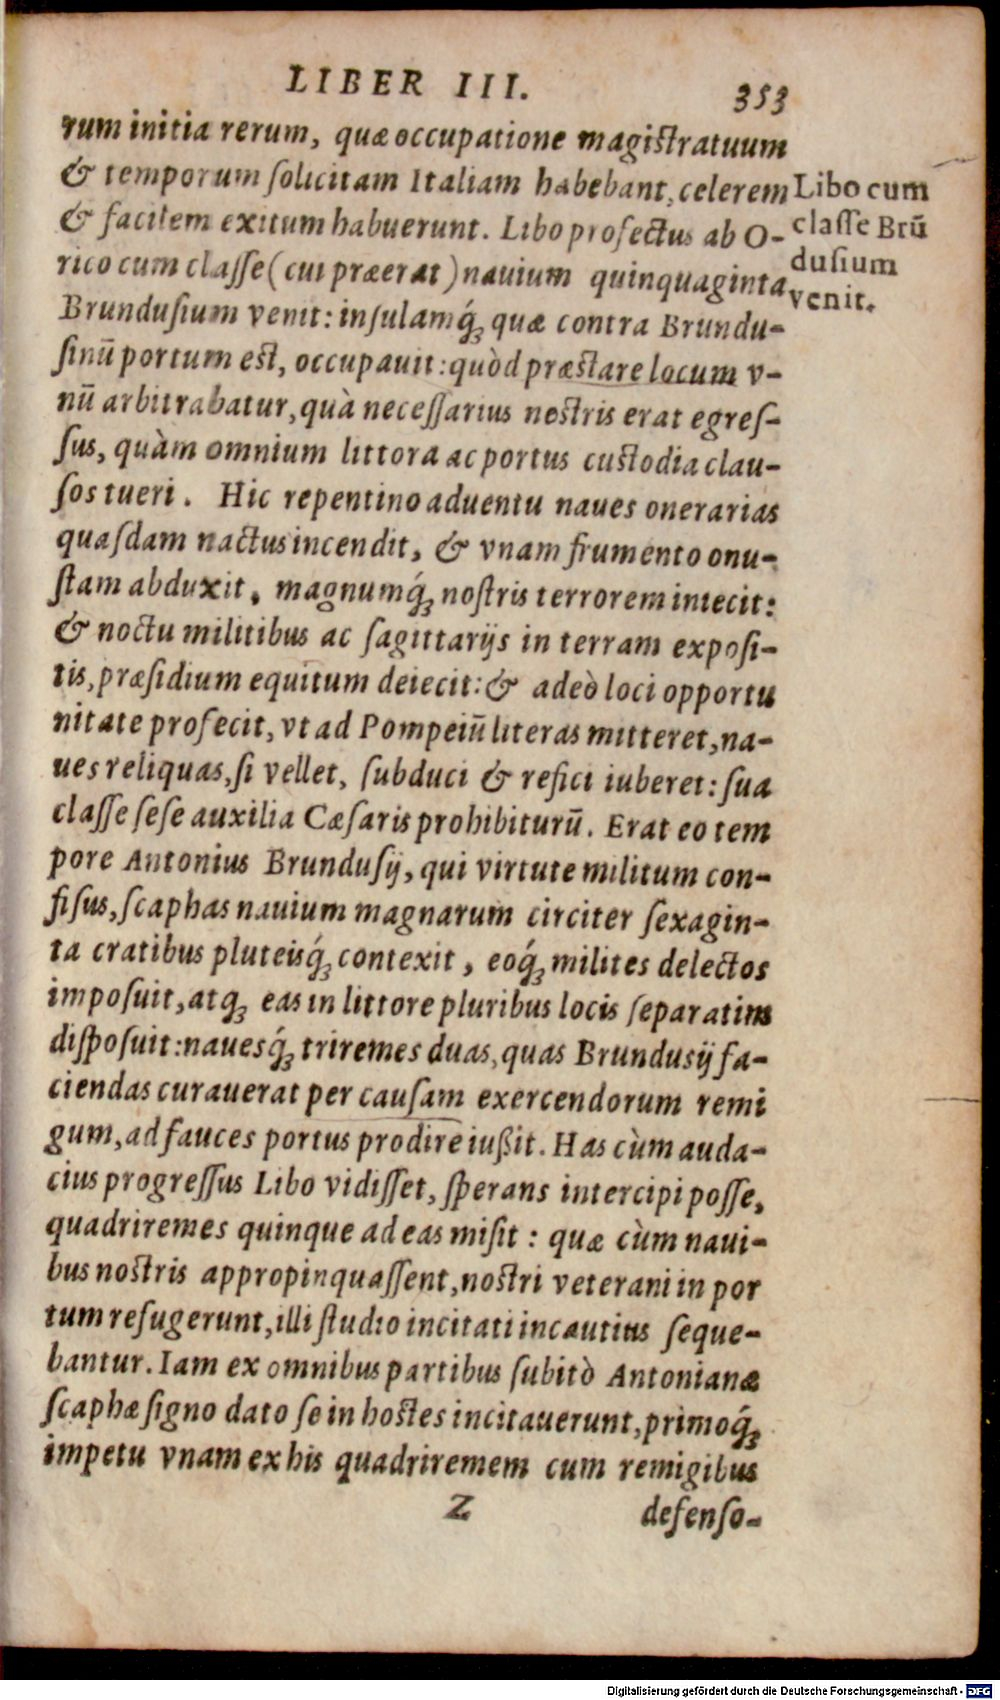 LIBER III. 353
rum initia rerum, quæ occupatione magistratuum
& temporum solicitam Italiam habebant, celerem
& facilem exitum habuerunt. Libo profectus ab O-
rico cum classe (cui præerat) nauium quinquaginta
Brundusium venit: insulamq́ꝫ quæ contra Brundu-
sinū portum est, occupauit: quòd præstare locum v-
nū arbitrabatur, quà necessarius nostris erat egres-
sus, quàm omnium littora ac portus custodia clau-
sos tueri. Hic repentino aduentu naues onerarias
quasdam nactus incendit, & vnam frumento onu-
stam abduxit, magnumq́ꝫ nostris terrorem iniecit:
& noctu militibus ac sagittarijs in terram exposi-
tis, præsidium equitum deiecit: & adeò loci opportu
nitate profecit, vt ad Pompeiū literas mitteret, na-
ues reliquas, si vellet, subduci & refici iuberet: sua
classe sese auxilia Cæsaris prohibiturū. Erat eo tem
pore Antonius Brundusij, qui virtute militum con-
fisus, scaphas nauium magnarum circiter sexagin-
ta cratibus pluteisq́ꝫ contexit, eoq́ꝫ milites delectos
imposuit, atqꝫ eas in littore pluribus locis separatim
disposuit: nauesq́ꝫ triremes duas, quas Brundusij fa-
ciendas curauerat per causam exercendorum remi
gum, ad fauces portus prodire iußit. Has cùm auda-
cius progressus Libo vidisset, sperans intercipi posse,
quadriremes quinque ad eas misit: quæ cùm naui-
bus nostris appropinquassent, nostri veterani in por
tum refugerunt, illi studio incitati incautius seque-
bantur. Iam ex omnibus partibus subitò Antonianæ
scaphæ signo dato se in hostes incitauerunt, primoq́ꝫ
impetu vnam ex his quadriremem cum remigibus
Z defenso-
Libo cum
classe Brū
dusium
venit.
Digitalisierung gefördert durch die Deutsche Forschungsgemeinschaft - DFG